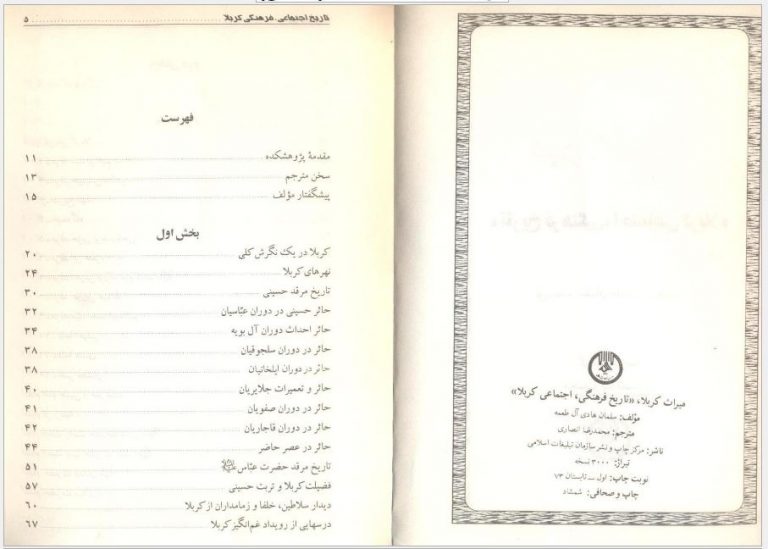 میراث کربلا، «تاریخ فرهنگی، اجتماعی کربلا»
مؤلف: سلمان هادی آل طعمه
مترجم: محمدرضا انصاری
ناشر: مرکز چاپ و نشر سازمان تبلیغات اسلامی
تیراژ: ۳۰۰۰ نسخه
نوبت چاپ: اول ــ تابستان ۷۳
چاپ و صحافی: شمشاد
تاریخ اجتماعی، فرهنگی کربلا ۵
فهرست
مقدمهٔ پژوهشکده ۱۱
سخن مترجم ۱۳
پیشگفتار مؤلف ۱۵
بخش اول
کربلا در یک نگرش کلی ۲۰
نهرهای کربلا ۲۴
تاریخ مرقد حسینی ۳۰
حائر حسینی در دوران عبّاسیان ۳۲
حائر احداث دوران آل بویه ۳۴
حائر در دوران سلجوقیان ۳۸
حائر در دوران ایلخانیان ۳۸
حائر و تعمیرات جلایریان ۴۰
حائر در دوران صفویان ۴۱
حائر در دوران قاجاریان ۴۲
حائر در عصر حاضر ۴۴
تاریخ مرقد حضرت عبّاس ۵۱
فضیلت کربلا و تربت حسینی ۵۷
دیدار سلاطین، خلفا و زمامداران از کربلا ۶۰
درسهایی از رویداد غم‌انگیز کربلا ۶۷